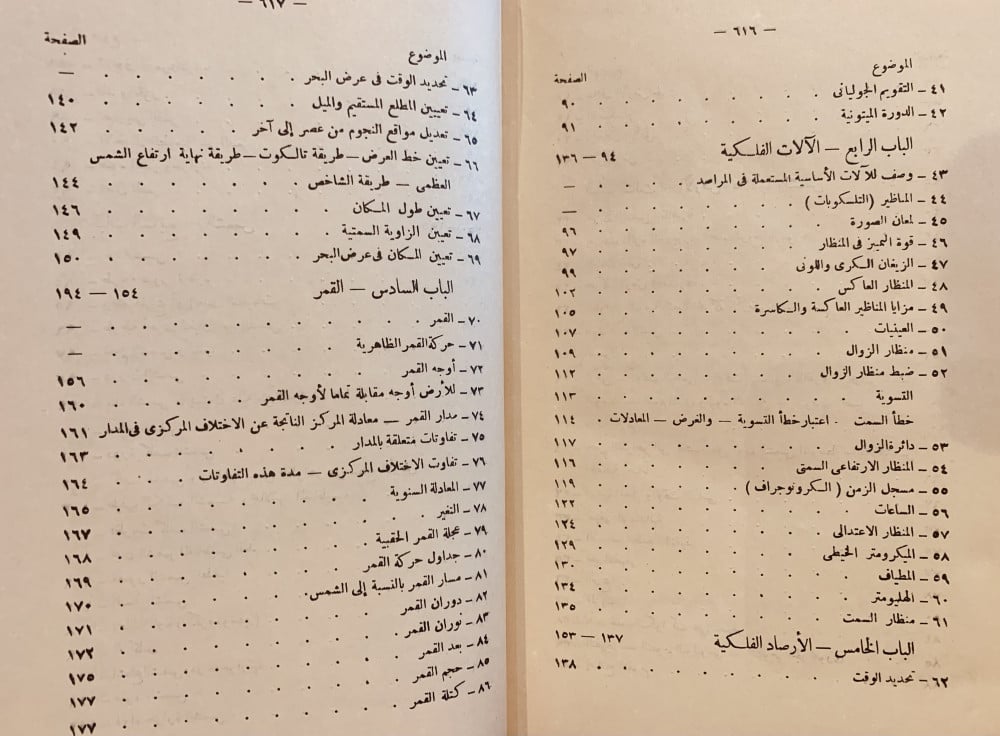 — ٦١٦ —
الموضوع الصفحة
٤١ — التقويم الجوليانى . . . . . . . ٩٠
٤٢ — الدورة الميتونية . . . . . . . ٩١
الباب الرابع — الآلات الفلكية ٩٤ — ١٣٦
٤٣ — وصف للآلات الأساسية المستعملة فى المراصد . . . . —
٤٤ — المناظير (التلسكوبات) . . . . . . —
٤٥ — لمعان الصورة . . . . . . . ٩٦
٤٦ — قوة التمييز فى المنظار . . . . . . ٩٧
٤٧ — الزيغان الكرى واللونى . . . . . . ٩٩
٤٨ — المنظار العاكس . . . . . . . ١٠٢
٤٩ — مزايا المناظير العاكسة والكاسرة . . . . . ١٠٥
٥٠ — العينيات . . . . . . . ١٠٧
٥١ — منظار الزوال . . . . . . . ١٠٩
٥٢ — ضبط منظار الزوال . . . . . . ١١٢
التسوية . . . . . . . ١١٣
خطأ السمت . اعتبار خطأ التسوية — والغرض — المعادلات . ١١٤
٥٣ — دائرة الزوال . . . . . . . ١١٧
٥٤ — المنظار الارتفاعى السمتى . . . . . . ١١٦
٥٥ — مسجل الزمن (الكرونوجراف) . . . . . ١١٩
٥٦ — الساعات . . . . . . . ١٢٢
٥٧ — المنظار الاعتدالى . . . . . . . ١٢٤
٥٨ — الميكرومتر الخيطى . . . . . . ١٢٩
٥٩ — المطياف . . . . . . . ١٣٠
٦٠ — الهليومتر . . . . . . . ١٣٤
٦١ — منظار السمت . . . . . . . ١٣٥
الباب الخامس — الأرصاد الفلكية ١٣٧ — ١٥٣
٦٢ — تحديد الوقت . . . . . . . ١٣٨
— ٦١٧ —
الموضوع الصفحة
٦٣ — تحديد الوقت فى عرض البحر . . . . . . —
٦٤ — تعيين المطلع المستقيم والميل . . . . . . ١٤٠
٦٥ — تعديل مواقع النجوم من عصر إلى آخر . . . . . ١٤٢
٦٦ — تعيين خط العرض — طريقة تالكوت — طريقة نهاية ارتفاع الشمس
العظمى — طريقة الشاخص . . . . . . ١٤٤
٦٧ — تعيين طول المكان . . . . . . . ١٤٦
٦٨ — تعيين الزاوية السمتية . . . . . . . ١٤٩
٦٩ — تعيين المكان فى عرض البحر . . . . . . ١٥٠
الباب السادس — القمر ١٥٤ — ١٩٤
٧٠ — القمر . . . . . . . . —
٧١ — حركة القمر الظاهرية . . . . . . . —
٧٢ — أوجه القمر . . . . . . . ١٥٦
٧٣ — للأرض أوجه مقابلة تماما لأوجه القمر . . . . ١٦٠
٧٤ — مدار القمر — معادلة المركز الناتجة عن الاختلاف المركزى فى المدار ١٦١
٧٥ — تفاوتات متعلقة بالمدار . . . . . . ١٦٣
٧٦ — تفاوت الاختلاف المركزى — مدة هذه التفاوتات . . . ١٦٤
٧٧ — المعادلة السنوية . . . . . . . ١٦٥
٧٨ — التغير . . . . . . . ١٦٧
٧٩ — عجلة القمر الحقبية . . . . . . . ١٦٨
٨٠ — جداول حركة القمر . . . . . . . ١٦٩
٨١ — مسار القمر بالنسبة إلى الشمس . . . . . . ١٧٠
٨٢ — دوران القمر . . . . . . . ١٧١
٨٣ — نوران القمر . . . . . . . ١٧٢
٨٤ — بعد القمر . . . . . . . ١٧٥
٨٥ — حجم القمر . . . . . . . ١٧٧
٨٦ — كتلة القمر . . . . . . . ١٧٧